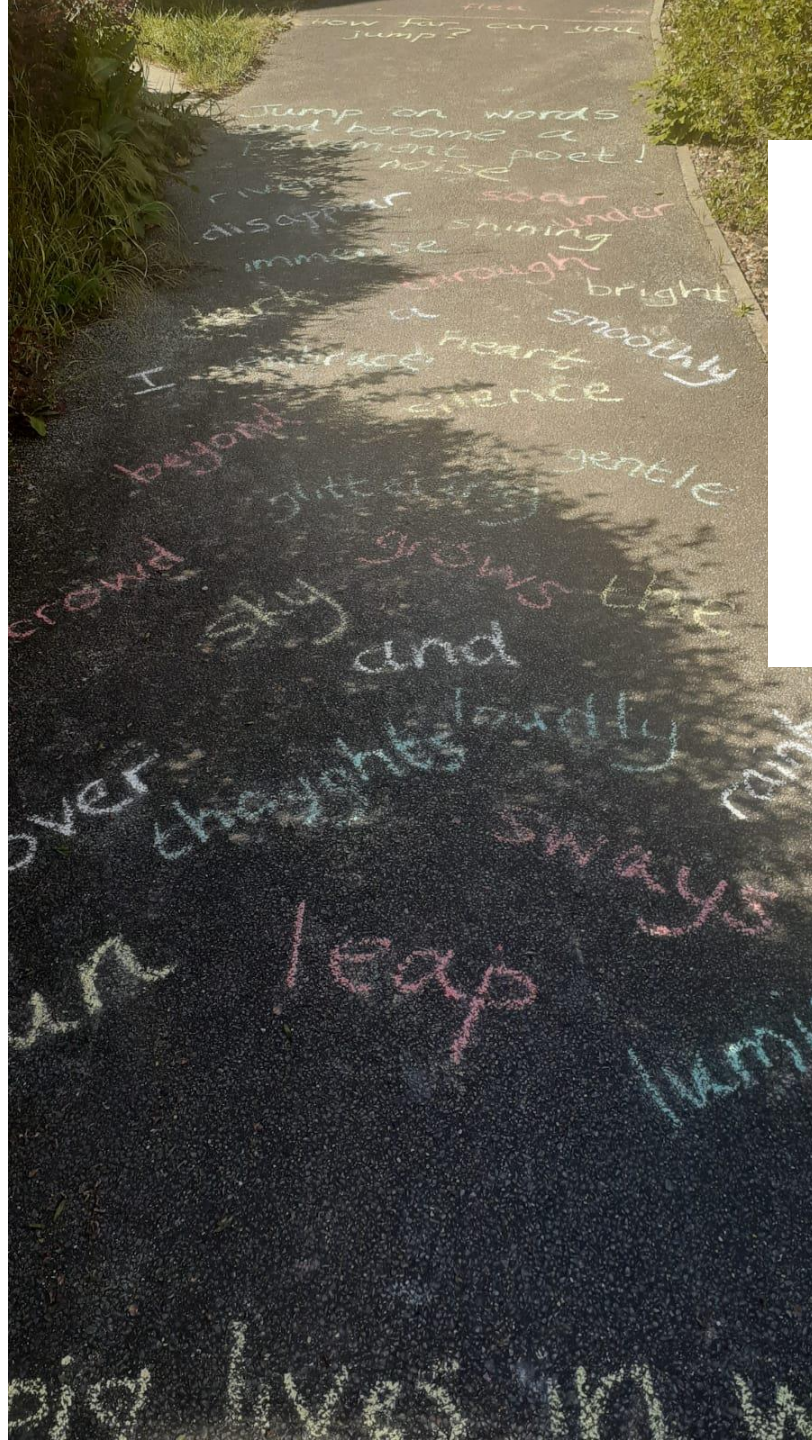 flea
How far can you
jump?
Jump on words
and become a
pavement poet!
noise
river soar
disappear shining under
immense through bright
dark a smoothly
I embrace heart
silence
beyond gentle
glittering
crowd grows the
sky
and
loudly
over thoughts
sways
leap
lives in